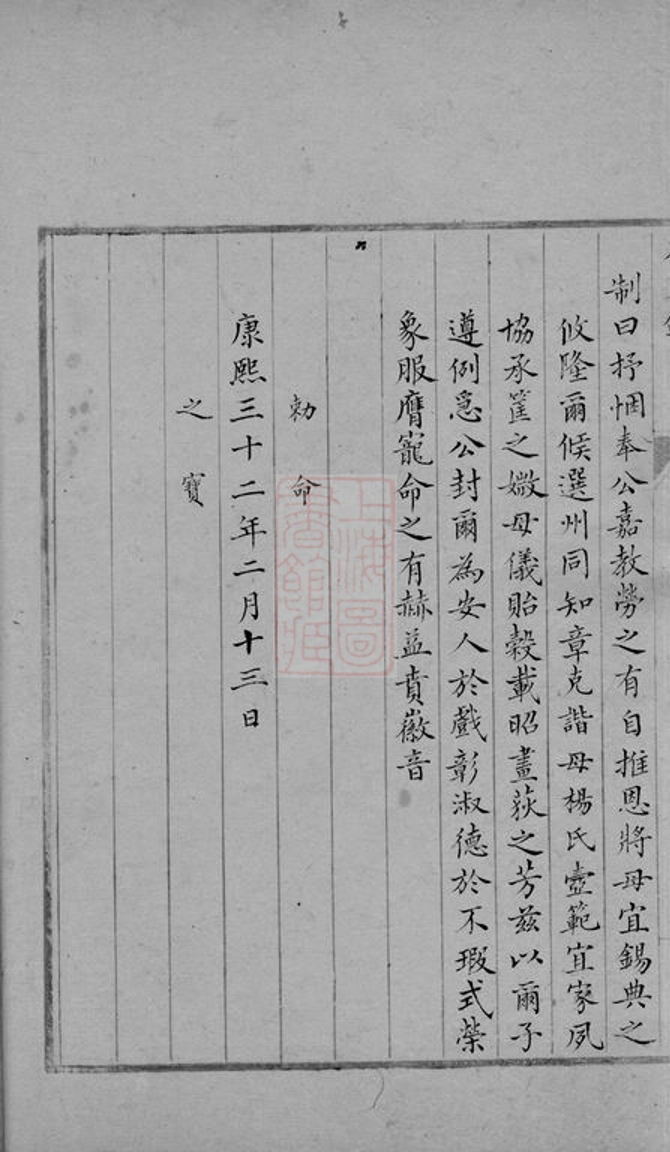 制曰抒悃奉公嘉教勞之有自推恩將母宜錫典之
攸隆爾候選州同知章克諧母楊氏壼範宜家夙
協承筐之媺母儀貽穀載昭畫荻之芳兹以爾子
遵例急公封爾為安人於戲彰淑德於不瑕式榮
象服膺寵命之有赫益賁徽音
勅命
康熙三十二年二月十三日
之寶
上海圖
書館藏